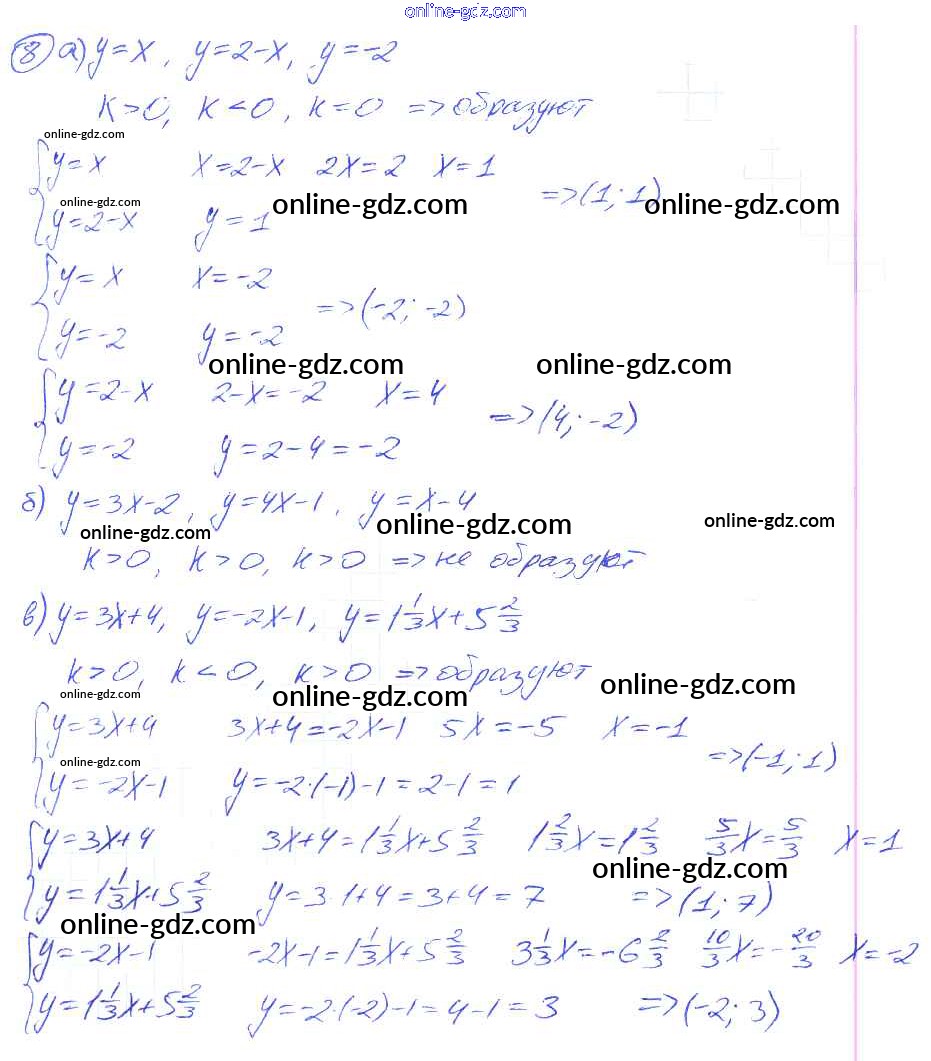 online-gdz.com
8 а) y=x, y=2-x, y=-2
k>0, k<0, k=0 => образуют
online-gdz.com
y=x x=2-x 2x=2 x=1
=>(1; 1)
online-gdz.com online-gdz.com online-gdz.com
y=2-x y=1
y=x x=-2
=>(-2; -2)
y=-2 y=-2
online-gdz.com online-gdz.com
y=2-x 2-x=-2 x=4
=>(4; -2)
y=-2 y=2-4=-2
б) y=3x-2, y=4x-1, y=x-4
online-gdz.com online-gdz.com online-gdz.com
k>0, k>0, k>0 => не образуют
в) y=3x+4, y=-2x-1, y=1 1/3x+5 2/3
k>0, k<0, k>0 => образуют
online-gdz.com online-gdz.com online-gdz.com
y=3x+4 3x+4=-2x-1 5x=-5 x=-1
=>(-1; 1)
online-gdz.com
y=-2x-1 y=-2·(-1)-1=2-1=1
y=3x+4 3x+4=1 1/3x+5 2/3 1 2/3x=1 2/3 5/3x=5/3 x=1
online-gdz.com
y=1 1/3x+5 2/3 y=3·1+4=3+4=7 =>(1; 7)
online-gdz.com
y=-2x-1 -2x-1=1 1/3x+5 2/3 3 1/3x=-6 2/3 10/3x=-20/3 x=-2
y=1 1/3x+5 2/3 y=-2·(-2)-1=4-1=3 =>(-2; 3)